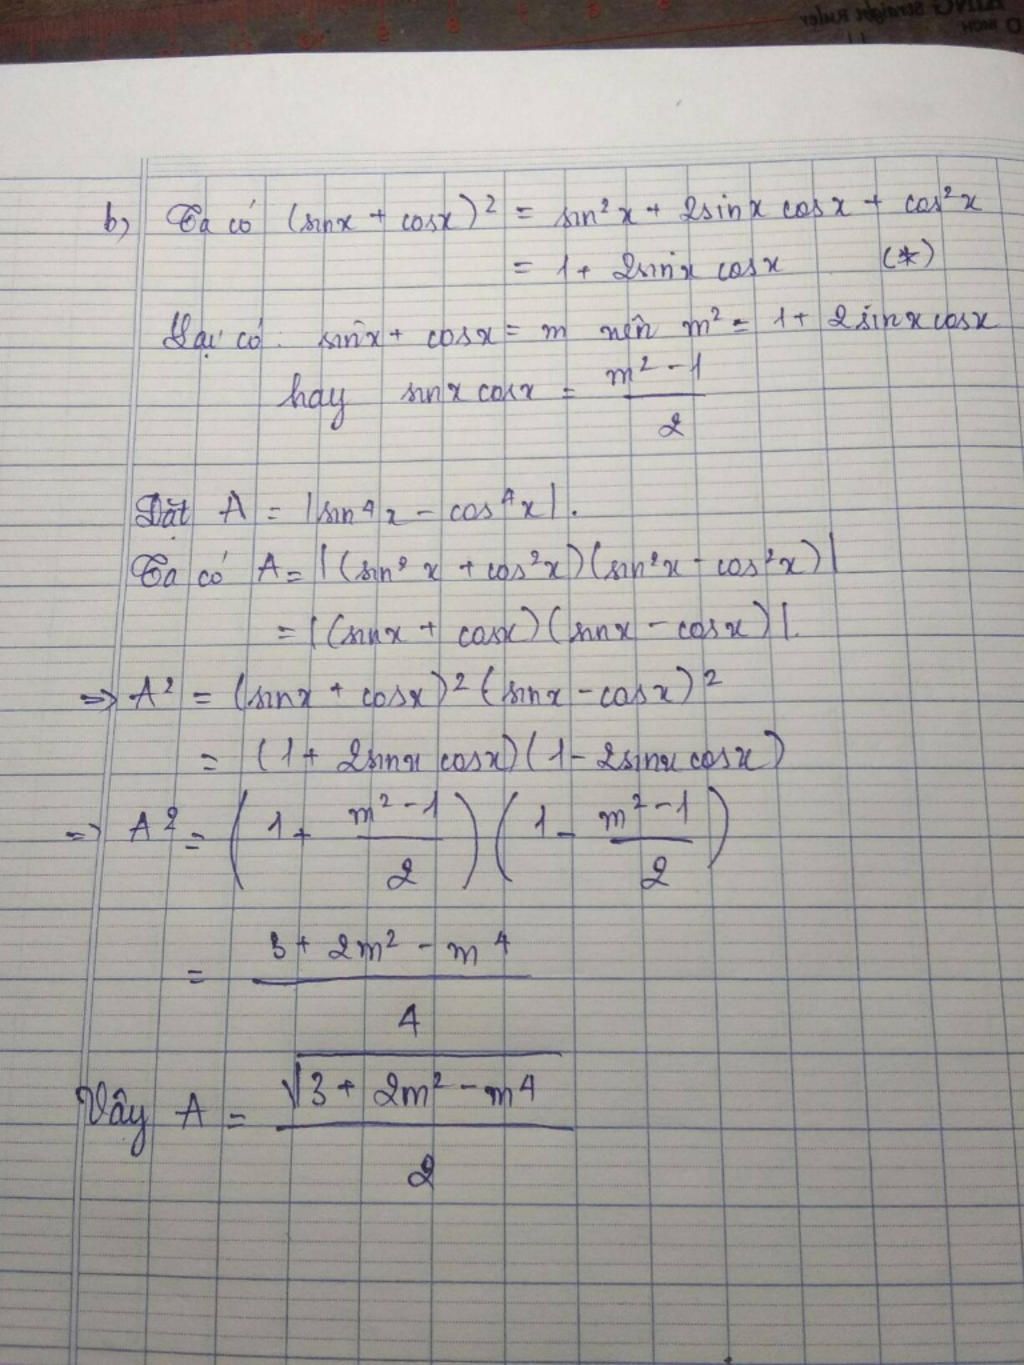 b) Ta có (sinx + cosx)² = sin²x + 2sinx cosx + cos²x
= 1 + 2sinx cosx (*)
Lại có. sinx + cosx = m nên m² = 1 + 2sinxcosx
hay sinx cosx = \frac{m² - 1}{2}
Đặt A = |sin⁴x - cos⁴x|.
Ta có A = |(sin²x + cos²x)(sin²x - cos²x)|
= |(sinx + cosx)(sinx - cosx)|.
=> A² = (sinx + cosx)²(sinx - cosx)²
= (1 + 2sinx cosx)(1 - 2sinx cosx)
=> A² = (1 + \frac{m² - 1}{2})(1 - \frac{m² - 1}{2})
= \frac{3 + 2m² - m⁴}{4}
Vậy A = \frac{\sqrt{3 + 2m² - m⁴}}{2}